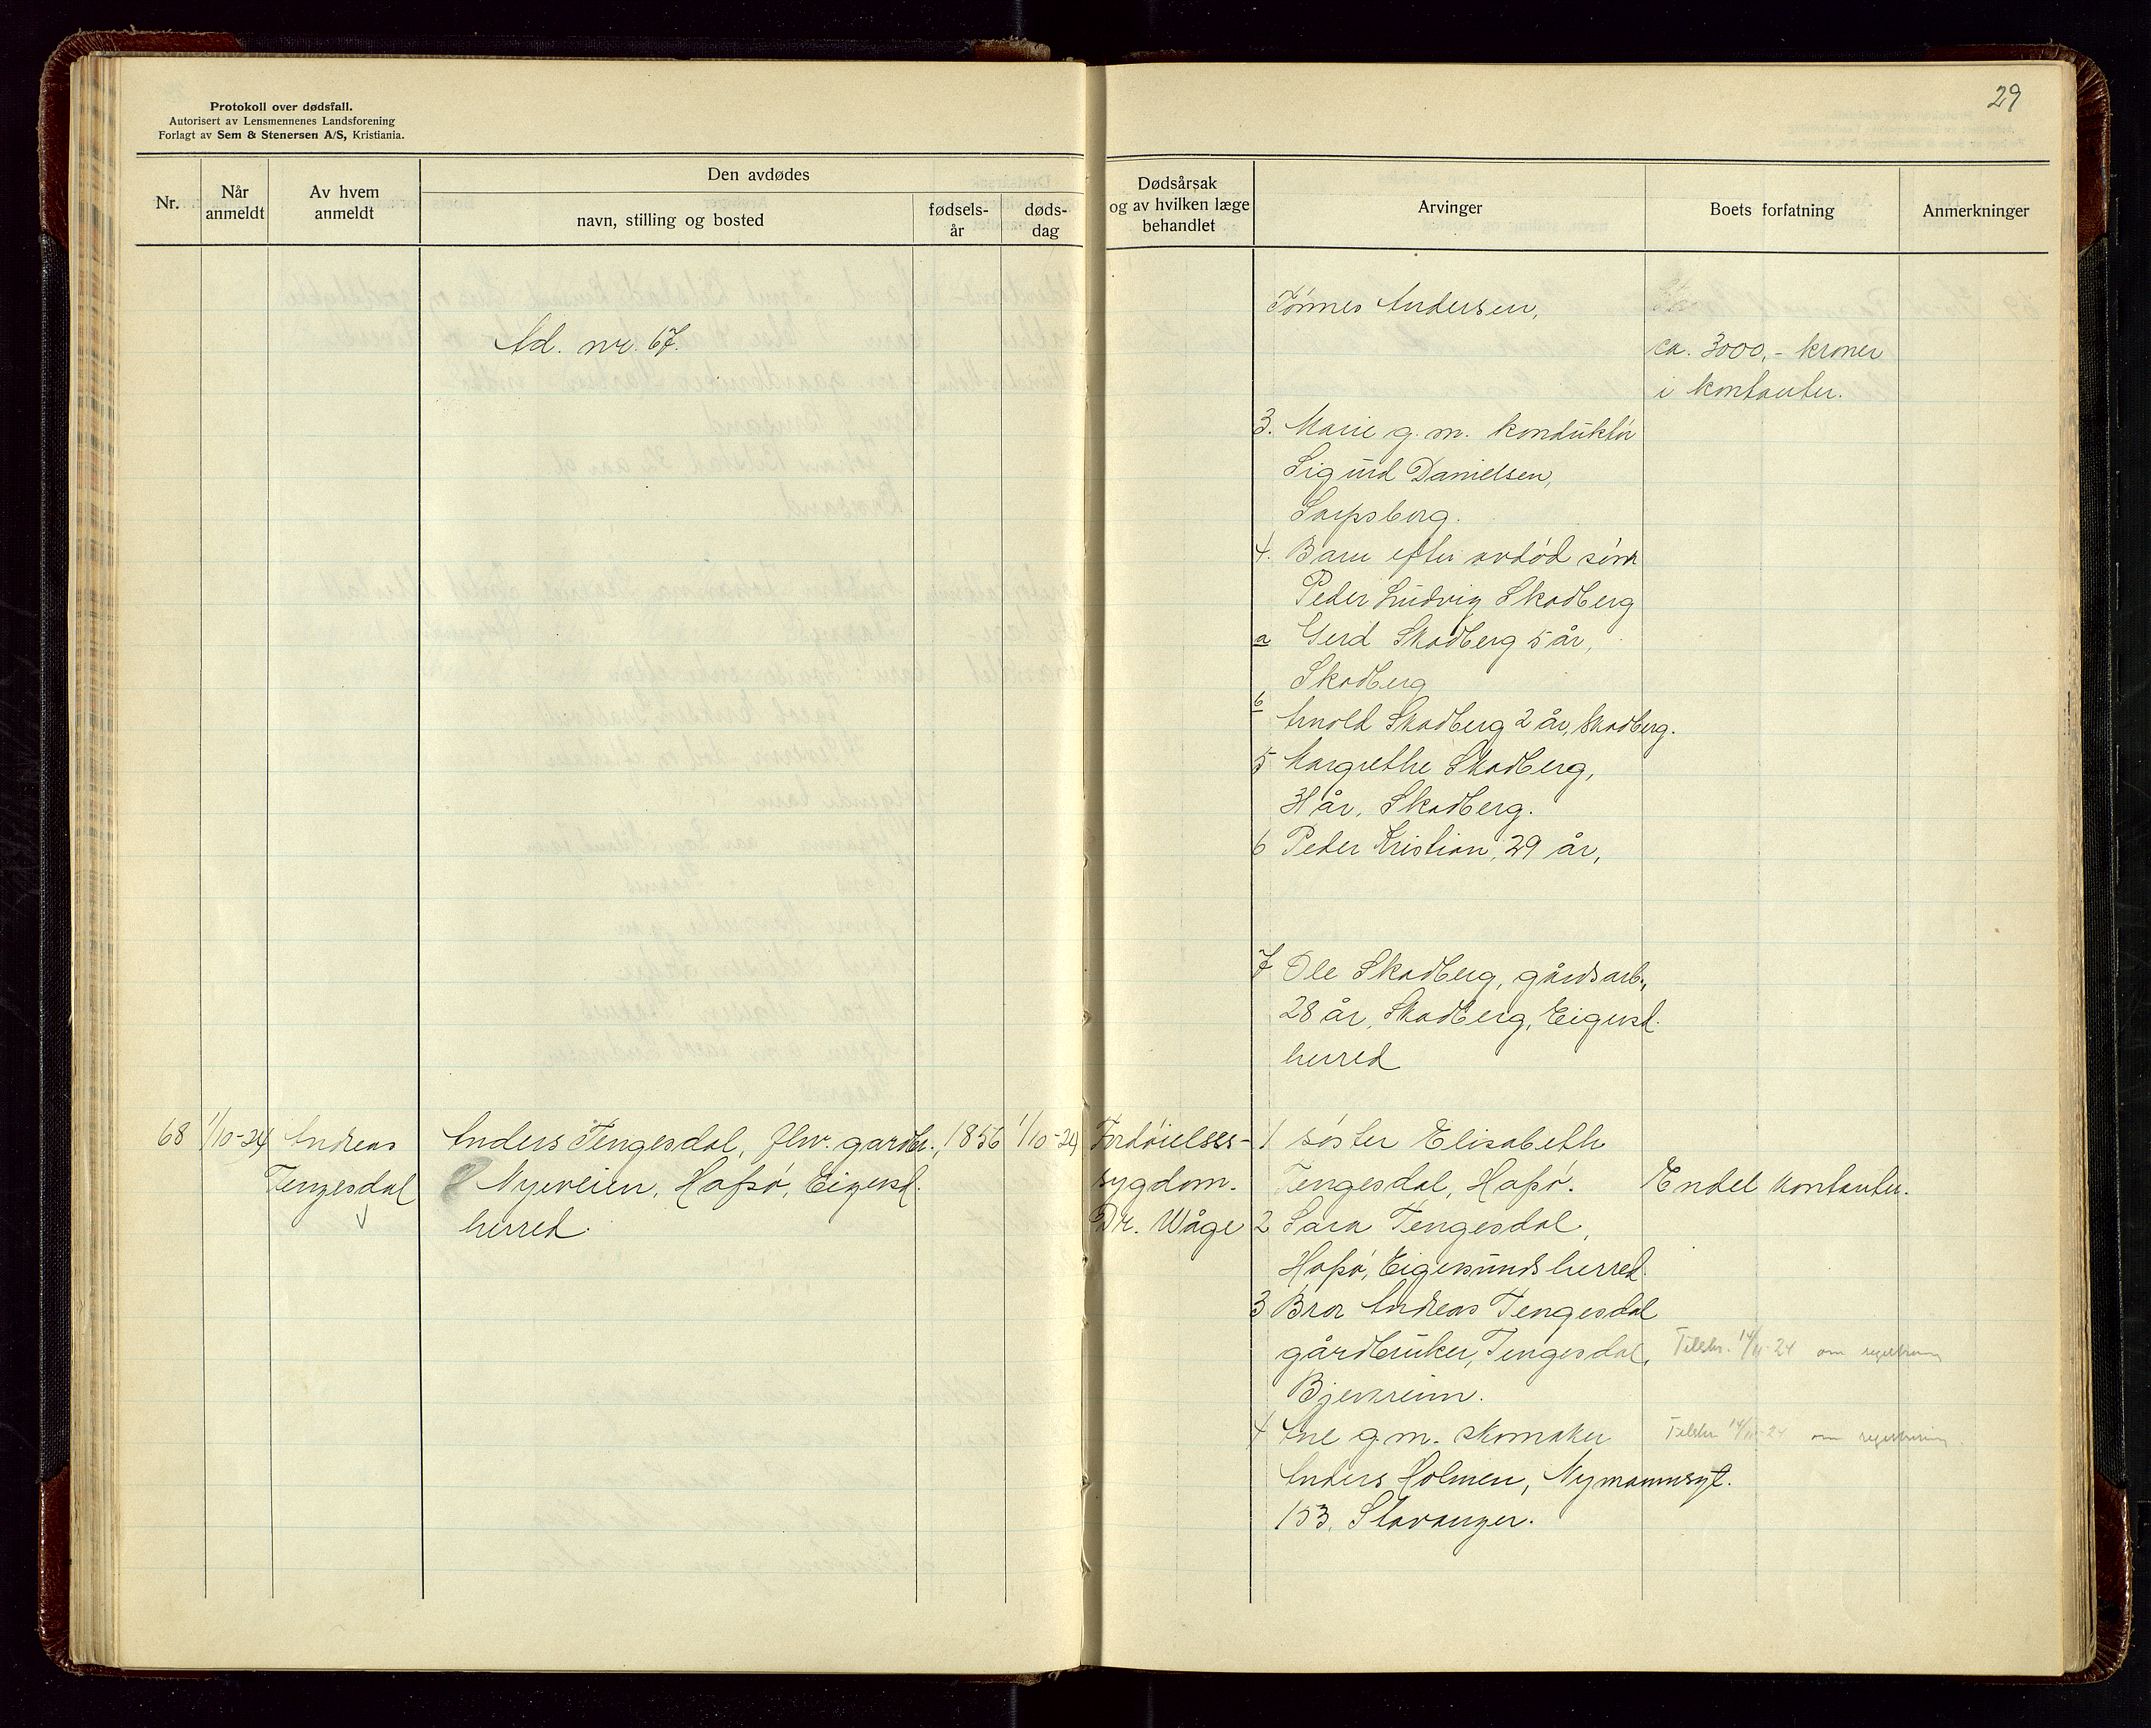 Protokoll over dødsfall.
Autorisert av Lensmennenes Landsforening
Forlagt av Sem & Stenersen A/S, Kristiania.
Nr.
Når
anmeldt
Av hvem
anmeldt
Den avdødes
navn, stilling og bosted
fødsels-
år
døds-
dag
Ad. nr. 67.
68 1/10-24 Andreas
Tengesdal
Anders Tengesdal, fhv. gardbr.,
Nyeveien, Hafsø, Eigersd.
herred.
1856 1/10-24
29
Dødsårsak
og av hvilken læge
behandlet
Arvinger
Boets forfatning
Anmerkninger
Tønnes Andersen,
ca. 3000,- kroner
i kontanter.
3. Marie g. m. konduktør
Sigurd Danielsen,
Sarpsborg.
4. Barn efter avdød sønn
Peder Ludvig Skadberg
a Gerd Skadberg 5 år,
Skadberg
b
Arnold Skadberg 2 år, Skadberg.
5 Margrethe Skadberg,
31 år, Skadberg.
6 Peder Kristian, 29 år,
7 Ole Skadberg, gårdsarb.,
28 år, Skadberg, Eigersd.
herred
Fordøielses-
sygdom.
Dr. Wåge
1 søster Elisabeth
Tengesdal, Hafsø.
Endel kontanter.
2 Sara Tengesdal,
Hafsø, Eigersunds herred.
3 Bror Andreas Tengesdal
gårdbruker, Tengesdal,
Bjerkreim.
Tilskr. 14/11-24 om registrering
4 Ane g.m. skomaker
Anders Holmen, Nymannsgt.
153, Stavanger.
Tilskr 14/11-24 om registrering.